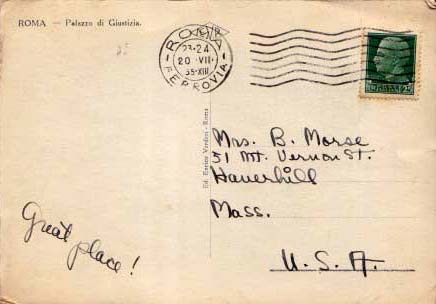 ROMA — Palazzo di Giustizia.
ROMA
FERROVIA
23-24
20 · VII ·
35-XIII
Ed. Enrico Verdesi - Roma
Mrs. B. Morse
51 Mt. Vernon St.
Haverhill
Mass.
U.S.A.
Great place!